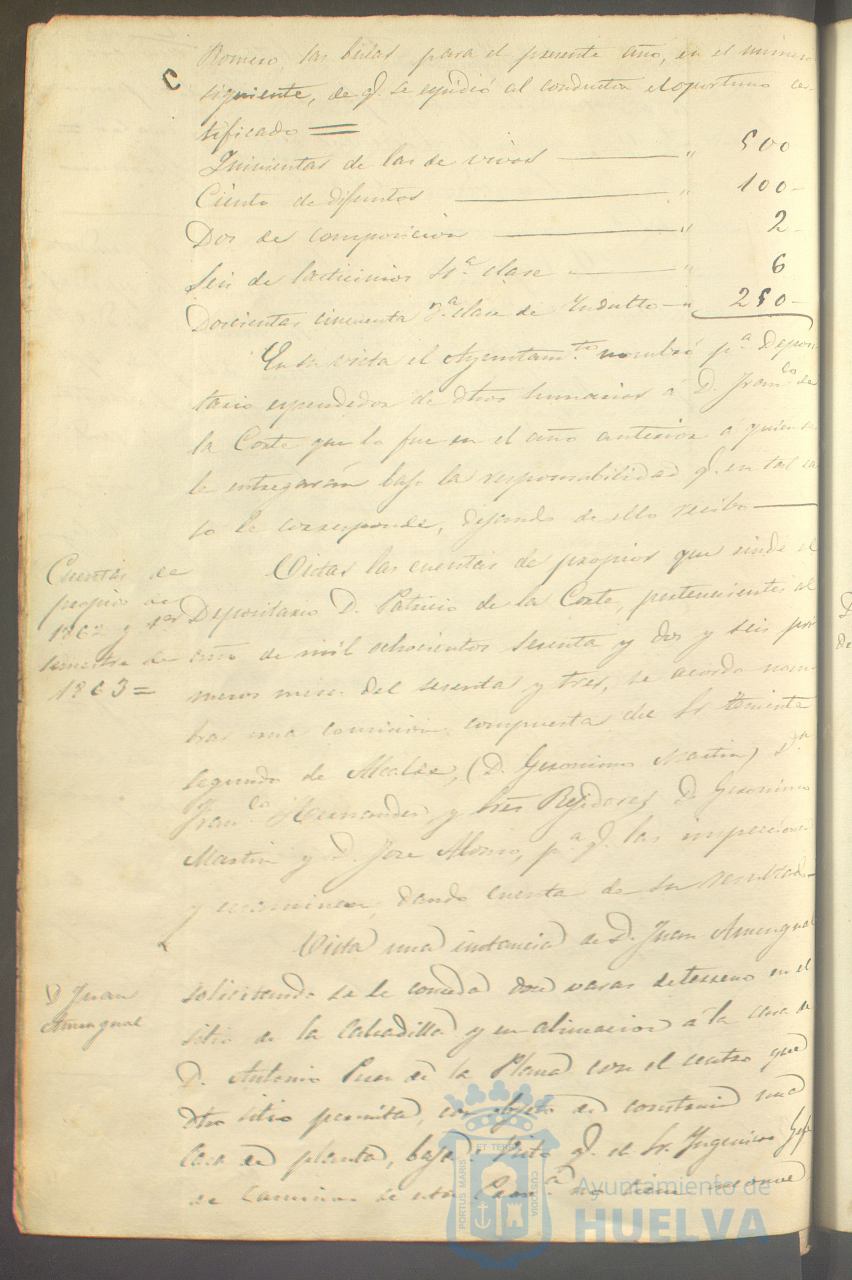 Romero, las bulas para el presente año, en el numero
siguiente, de q.e se espidió al conductor el oportuno cer-
tificado =
Quinientas de las de vivos — " 500
Ciento de difuntos — " 100-
Dos de composicion — " 2-
Seis de lacticinios 4.a clase — " 6
Doscientas cincuenta 3.a clase de Indulto — " 250-
En su vista el Ayuntam.to nombró p.a Deposi-
tario espendedor de dhos sumarios á D. Fran.co de
la Corte que lo fue en el año anterior á quien se
le entregarán bajo la responsabilidad q.e en tal ca-
so le corresponde, dejando de ello recibo —
Cuentas de
propios de
1862 y 1.er
semestre de
1863 =
Vistas las cuentas de propios que rinde el
Depositario D. Patricio de la Corte, pertenecientes al
año de mil ochocientos sesenta y dos y seis pri-
meros meses del sesenta y tres, se acordó nom-
brar una comision compuesta del Sr. teniente
segundo de Alcalde, (D. Geronimo Martin) D.n
Fran.co Hernandez y Sres Regidores D. Geronimo
Martin y D. Jose Alonso, p.a q.e las inspeccionen
y examinen, dando cuenta de su resultado-
D. Juan
Amengual
Vista una instancia de D. Juan Amengual
solicitando se le conceda doce varas de terreno en el
sitio de la Calzadilla y en alineacion á la casa de
D. Antonio de la con el centro que
dho sitio permita, con objeto de construir una
casa de planta baja: Visto q.e el Sr. Ingeniero Gefe
de Caminos de esta Prov.a no tiene
PORTUS MARIS ET TERRAE CUSTODIA
Ayuntamiento de
HUELVA